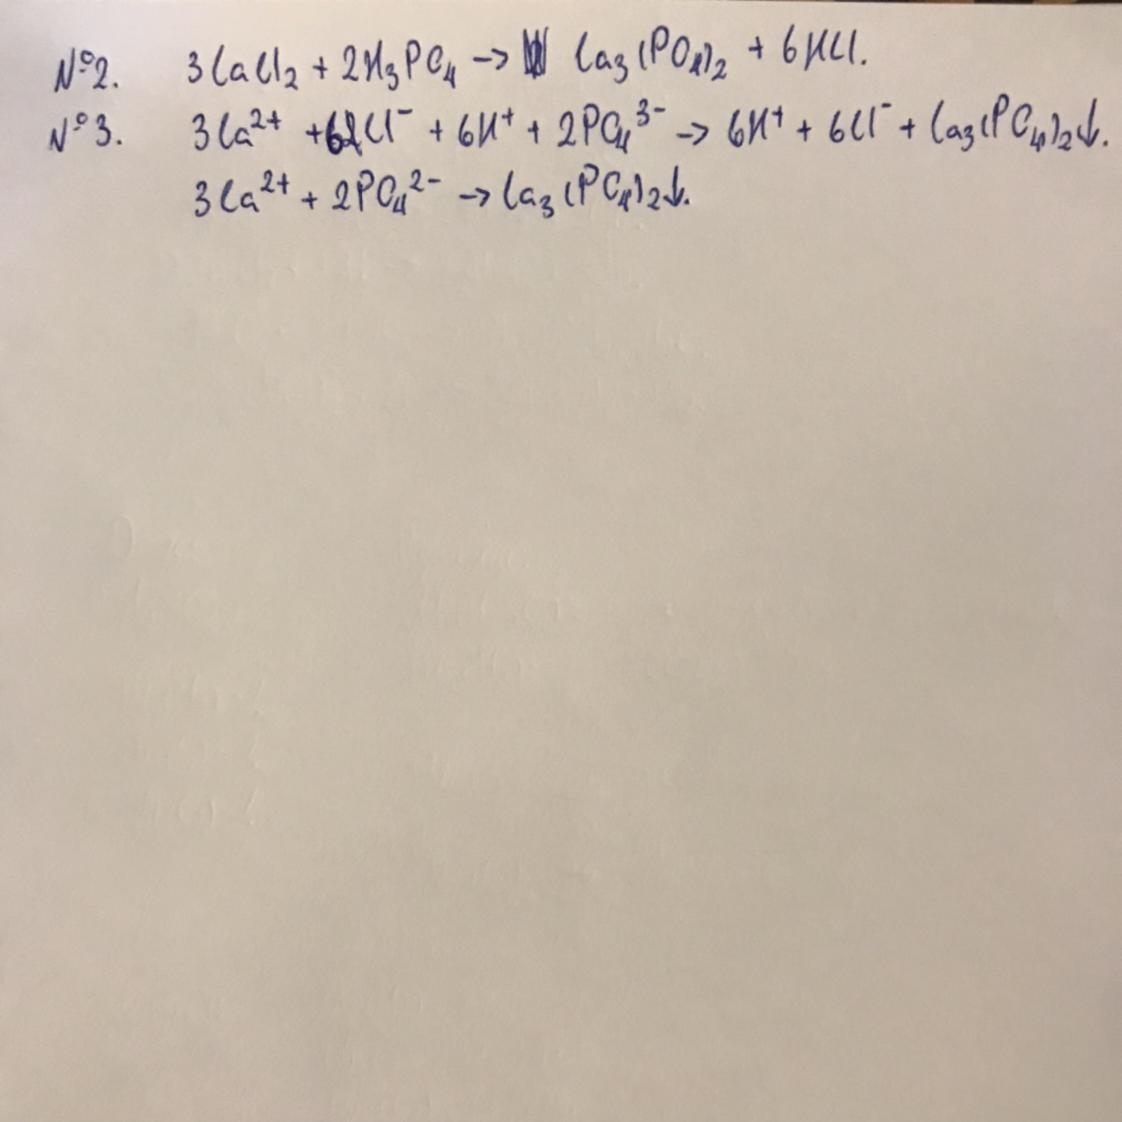 №2. 3CaCl₂ + 2H₃PO₄ → Ca₃(PO₄)₂ + 6HCl.
№3. 3Ca²⁺ + 6Cl⁻ + 6H⁺ + 2PO₄³⁻ → 6H⁺ + 6Cl⁻ + Ca₃(PO₄)₂↓.
3Ca²⁺ + 2PO₄²⁻ → Ca₃(PO₄)₂↓.